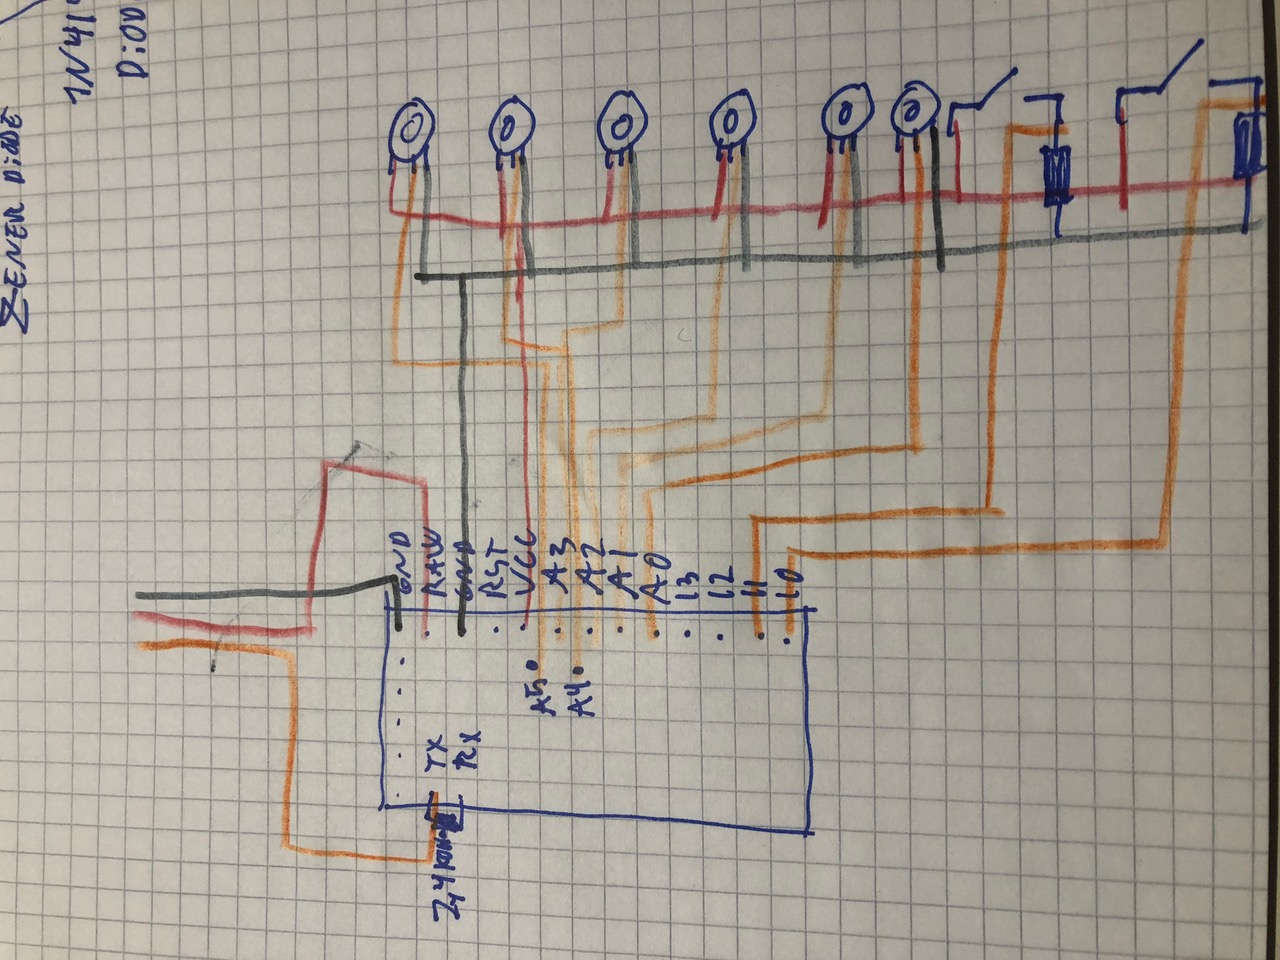 ZENER DiODE
1N41
DiOD
GND
TX RAW
RX GND
RST
VCC
A5
A3
A4
A2
A1
A0
13
12
11
10